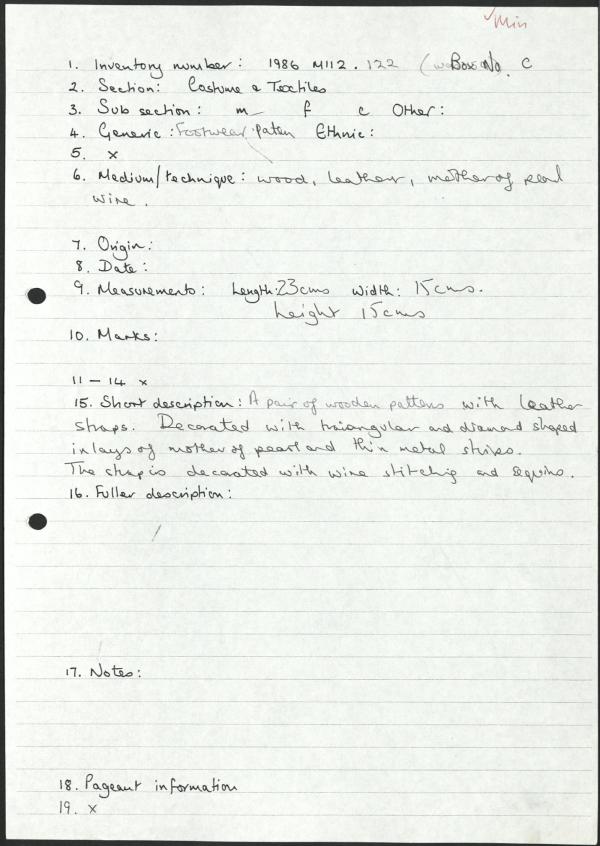 Min
1. Inventory number: 1986 M112.122 ( Box No. C
2. Section: Costume & Textiles
3. Sub section: m f c Other:
4. Generic: Footwear Paten Ethnic:
5. x
6. Medium/technique: wood, leather, mother of pearl
wire.
7. Origin:
8. Date:
9. Measurements: Length: 23cms Width: 15cms.
height 15cms
10. Marks:
11 - 14 x
15. Short description: A pair of wooden pattens with leather
straps. Decorated with triangular and diamond shaped
inlays of mother of pearl and thin metal strips.
The strap is decorated with wire stitching and sequins.
16. Fuller description:
17. Notes:
18. Pageant information
19. x